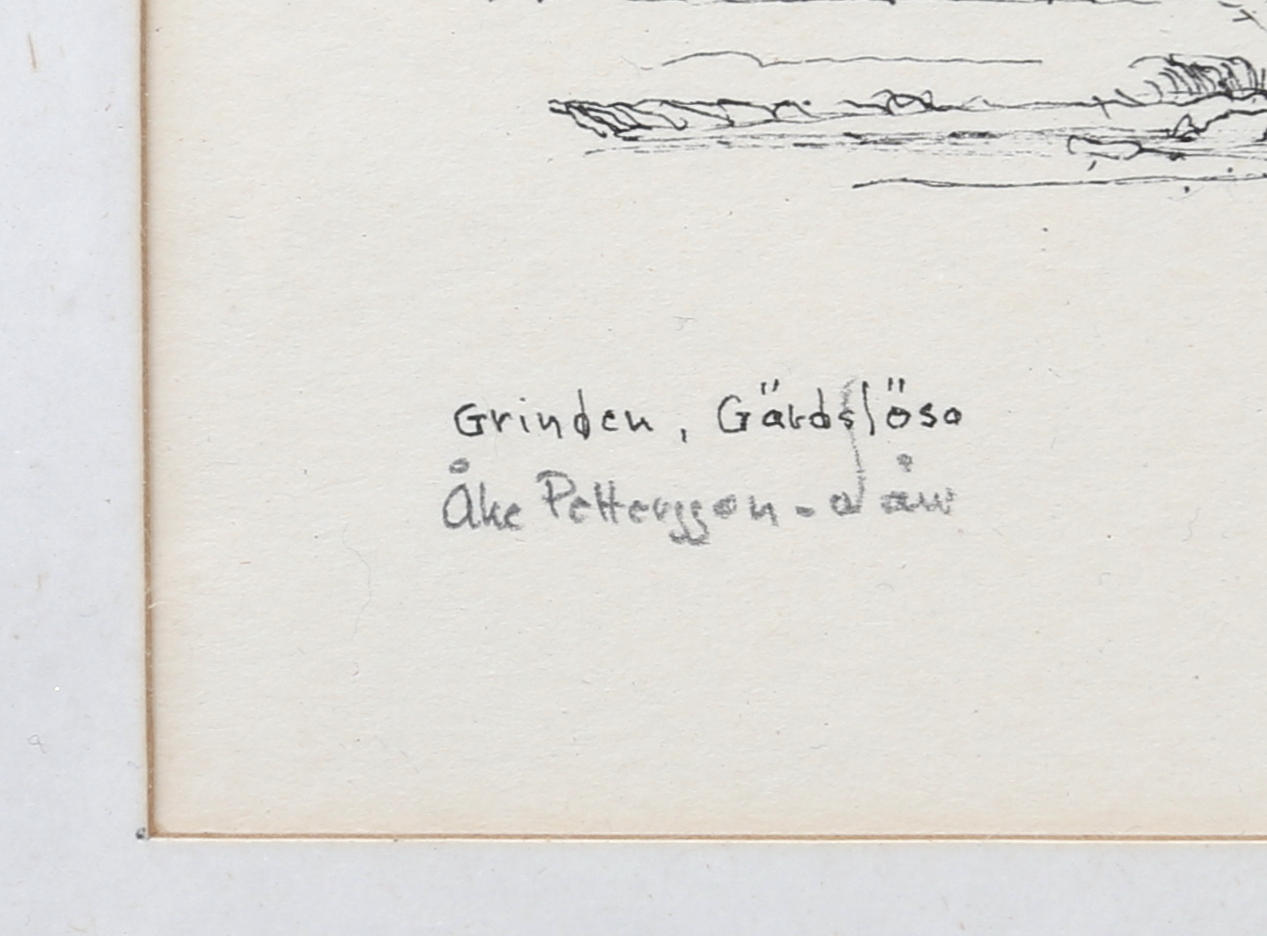 Grinden, Gärdslösa
Åke Pettersson -